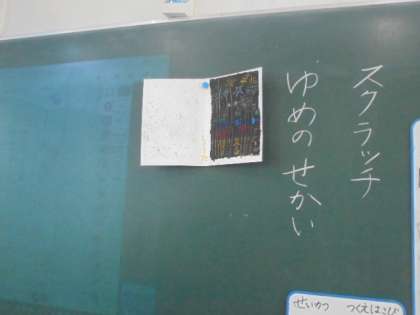 スクラッチ
ゆめのせかい
せいかつ つくえはこび